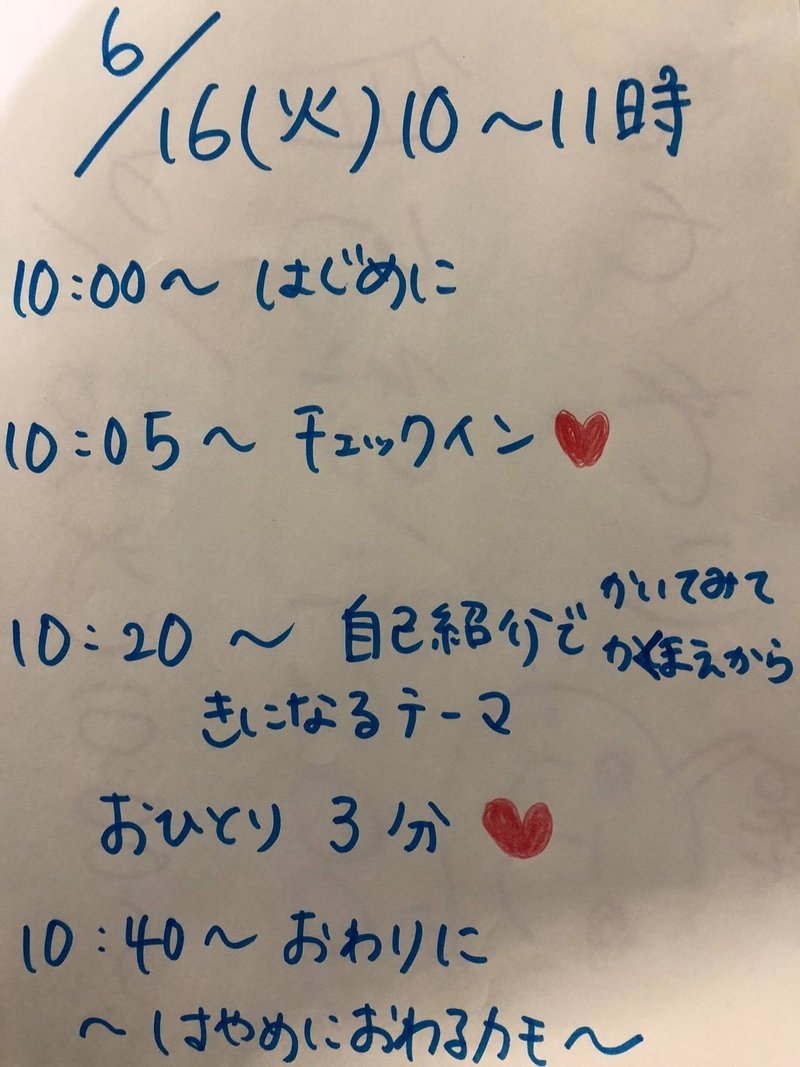 6/16(火)10〜11時
10:00〜 はじめに
10:05〜 チェックイン
10:20 〜 自己紹介で かいてみて
かくまえから
きになるテーマ
おひとり 3分
10:40〜おわりに
〜はやめにおわるカモ〜